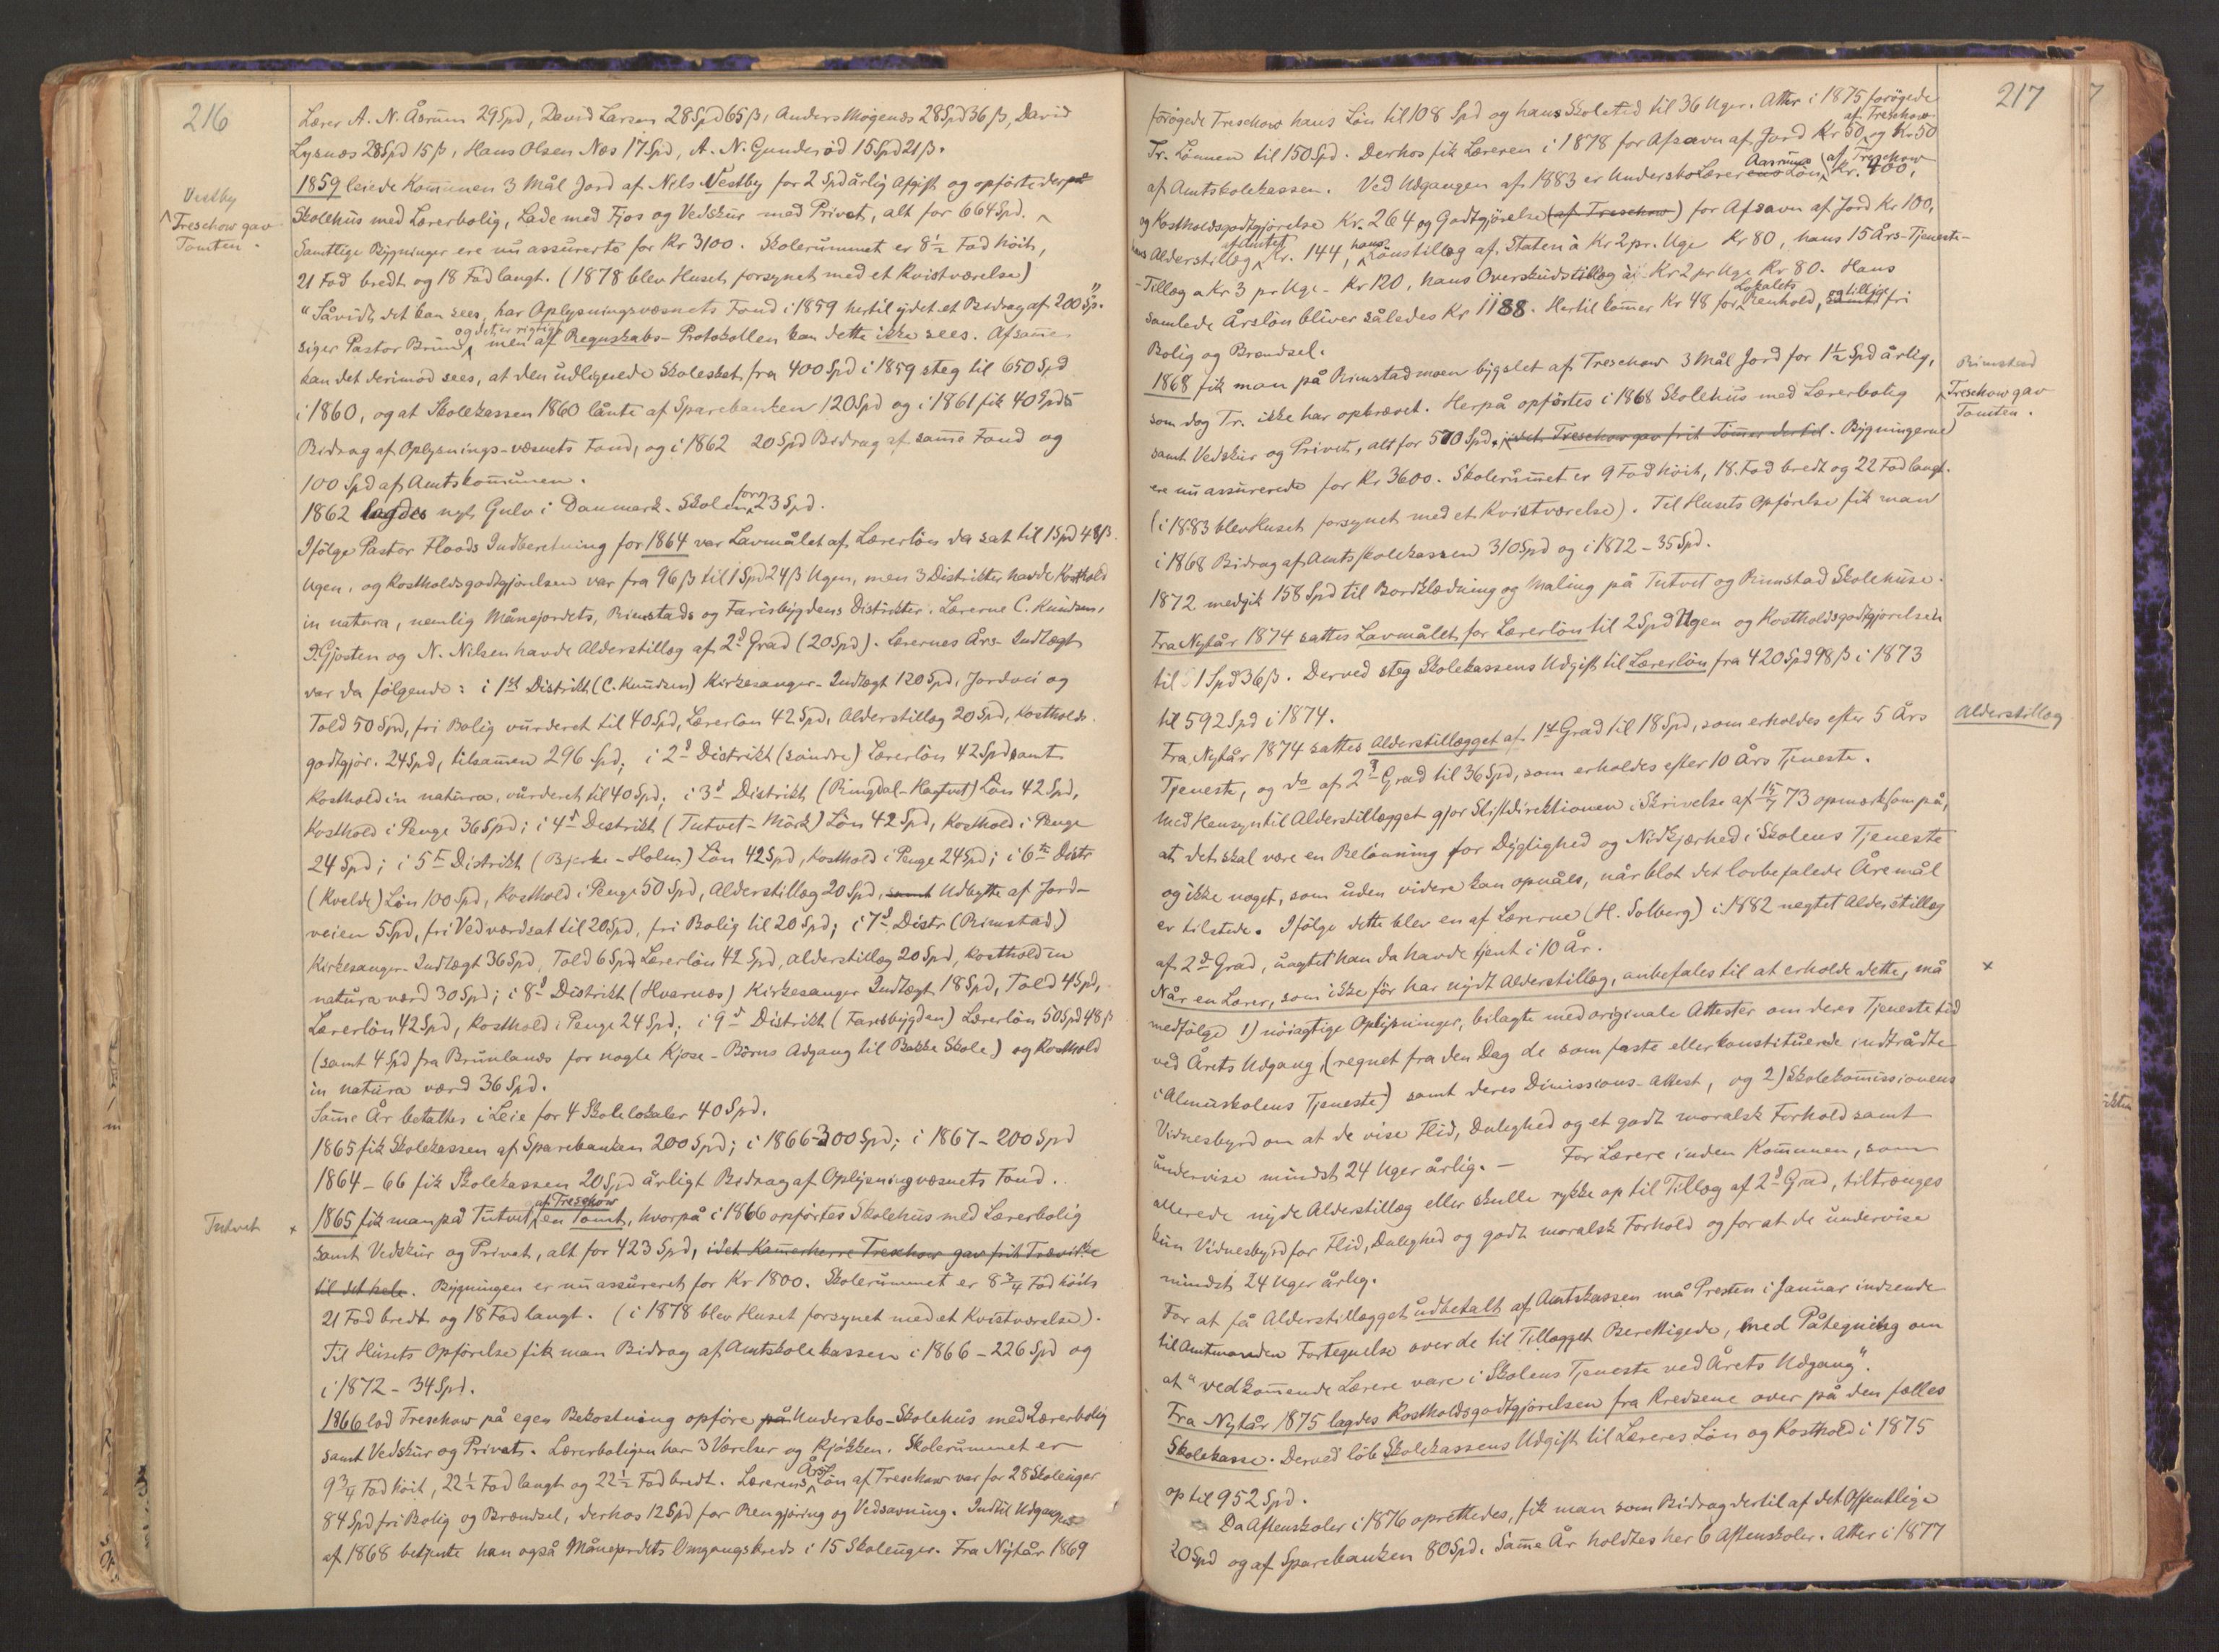 216
Lærer A. N. Åsrum 29 Spd, David Larsen 28 Spd 65 ß, Anders Mogenæs 28 Spd 36 ß, David
Lysnæs 28 Spd 15 ß, Hans Olsen Næs 17 Spd, A. N. Gunderød 15 Spd 21 ß.
1859 leiede Kom̄unen 3 Mål Jord af Nels Vestby for 2 Spd årlig Afgift og opførte derpå
Vestby
Skolehus med Lærerbolig, Lade med Fjøs og Vedskur med Privet, alt for 664 Spd. ^
^ Treschow gav
Tomten.
Samtlige Bygninger ere nu assurerte for Kr 3100. Skolerummet er 8½ Fod høit,
21 Fod bredt og 18 Fod langt. (1878 blev Huset forsynet med et Kvistværelse)
"Såvidt det kan sees, har Oplysningsvæsnets Fond i 1859 hertil ydet et Bidrag af 200 Sp."
siger Pastor Bruun, og det er rigtigt men af Regnskabs-Protokollen kan dette ikke sees. Af sam̄e
kan det derimod sees, at den udlignede Skoleskat fra 400 Spd i 1859 steg til 650 Spd
i 1860, og at Skolekassen 1860 lånte af Sparebanken 120 Spd og i 1861 fik 40 Spd
Bidrag af Oplysnings-væsnets Fond, og i 1862 20 Spd Bidrag af sam̄e Fond og
100 Spd af Amtskom̄unen.
1862 lagdes nyt Gulv i Danmark-Skolen for 23 Spd.
Ifølge Pastor Floods Indberetning for 1864 var Lavmålet af Lærerløn da sat til 1 Spd 48 ß
Ugen, og Kostholdsgodtgjørelsen var fra 96 ß til 1 Spd 24 ß Ugen, men 3 Distrikter havde Kosthold
in natura, nemlig Månejordets, Rimstads og Farisbygdens Distrikter. Lærerne C. Knudsen,
P. Gjøsten og N. Nilsen havde Alderstillæg af 2d Grad (20 Spd). Lærernes Års-Indtægt
var da følgende: i 1st Distrikt (C. Knudsen) Kirkesanger-Indtægt 120 Spd, Jordvei og
Told 50 Spd, fri Bolig vurderet til 40 Spd, Lærerløn 42 Spd, Alderstillæg 20 Spd, Kostholds-
godtgjør. 24 Spd, tilsam̄en 296 Spd; i 2d Distrikt (søndre) Lærerløn 42 Spd samt
Kosthold in natura, vurderet til 40 Spd; i 3d Distrikt (Ringdal-Hagtvet) Løn 42 Spd,
Kosthold i Penge 36 Spd; i 4d Distrikt (Tutvet-Mørk) Løn 42 Spd, Kosthold i Penge
24 Spd; i 5t Distrikt (Bjerke-Holm) Løn 42 Spd, Kosthold i Penge 24 Spd; i 6te Distr
(Kvelde) Løn 100 Spd, Kosthold i Penge 50 Spd, Alderstillæg 20 Spd, samt Udbytte af Jord-
veien 5 Spd, fri Ved værdsat til 20 Spd, fri Bolig til 20 Spd; i 7d Distr (Rimstad)
Kirkesanger-Indtægt 36 Spd, Told 6 Spd, Lærerløn 42 Spd, Alderstillæg 20 Spd, Kosthold in
natura værd 30 Spd; i 8d Distrikt (Hvarnæs) Kirkesanger Indtægt 18 Spd, Told 4 Spd,
Lærerløn 42 Spd, Kosthold i Penge 24 Spd; i 9d Distrikt (Farisbygden) Lærerløn 50 Spd 48 ß
(samt 4 Spd fra Brunlanæs for nogle Kjose-Børns Adgang til Bakke Skole) og Kosthold
in natura værd 36 Spd.
Sam̄e År betaltes i Leie for 4 Skolelokaler 40 Spd.
1865 fik Skolekassen af Sparebanken 200 Spd; i 1866 - 300 Spd; i 1867 - 200 Spd
1864-66 fik Skolekassen 20 Spd årligt Bidrag af Oplysningvæsnets Fond.
Tutvet
x 1865 fik man på Tutvet af Treschow en Tomt, hvorpå i 1866 opførtes Skolehus med Lærerbolig
samt Vedskur og Privat, alt for 423 Spd, idet Kam̄erherre Treschow gav frit Trævirke
til det hele. Bygningen er nu assureret for Kr 1800. Skolerummet er 8¾ Fod høit
21 Fod bredt og 18 Fod langt. (i 1878 blev Huset forsynet med et Kvistværelse).
Til Husets Opførelse fik man Bidrag af Amtskolekassen i 1866 - 226 Spd og
i 1872 - 34 Spd.
1866 lod Treschow på egen Bekostning opføre på Undersbo-Skolehus med Lærerbolig
samt Vedskur og Privat. Lærerboligen har 3 Værelser og Kjøkken. Skolerummet er
9¾ Fod høit, 22½ Fod langt og 22½ Fod bredt. Lærerens Års Løn af Treschow var for 28 Skoleuger
84 Spd fri Bolig og Brændsel, derhos 12 Spd for Rengjøring og Vedsavning. Indtil Udgangen
af 1868 betjente han også Månejordets Omgangskreds i 15 Skoleuger. Fra Nytår 1869
217
forøgede Treschow hans Løn til 108 Spd og hans Skoletid til 36 Uger. Atter i 1875 forøgede
Tr. Lønnen til 150 Spd. Derhos fik Læreren i 1878 for Afsavn af Jord Kr 50 af Treschow og Kr 50
af Amtskolekassen. Ved Udgangen af 1883 er Undersbo Lærerens Aasrums Løn af Treschow Kr. 400,
og Kostholdsgodtgjørelse Kr. 264 og Godtgjørelse (af Treschow) for Afsavn af Jord Kr 100,
hans Alderstillæg af Amtet Kr. 144, hans Lønstillæg af Staten à Kr 2 pr. Uge Kr 80, hans 15 Års-Tjeneste-
-Tillæg a Kr 3 pr Uge - Kr 120, hans Overskudstillæg ai Kr 2 pr Uge Kr 80. Hans
samlede Årsløn bliver således Kr 1188. Hertil kom̄er Kr 48 for Lokalets Renhold, samt og tillige fri
Bolig og Brændsel.
1868 fik man på Rimstadmoen bygslet af Treschow 3 Mål Jord for 1½ Spd årlig,
Rimstad
som dog Tr. ikke har opkrævet. Herpå opførtes i 1868 Skolehus med Lærerbolig
^ Treschow gav
Tomten.
samt Vedskur og Privet, alt for 570 Spd, idet Treschow gav frit Tøm̄er dertil. Bygningerne
ere nu assurerede for Kr 3600. Skolerum̄et er 9 Fod høit, 18 Fod bredt og 22 Fod langt.
(i 1883 blev Huset forsynet med et Kvistværelse). Til Husets Opførelse fik man
i 1868 Bidrag af Amtsskolekassen 310 Spd og i 1872 - 35 Spd.
1872 medgik 158 Spd til Bordklædning og Maling på Tutvet og Rimstad Skolehuse.
Fra Nytår 1874 sattes Lavmålet for Lærerløn til 2 Spd Ugen og Kostholdsgodtgjørelsen
til 1 Spd 36 ß. Derved steg Skolekassens Udgift til Lærerløn fra 420 Spd 98 ß i 1873
til 592 Spd i 1874.
Alderstillæg
Fra Nytår 1874 sattes Alderstillægget af 1st Grad til 18 Spd, som erholdes efter 5 Års
Tjeneste, og do af 2d Grad til 36 Spd, som erholdes efter 10 Års Tjeneste.
Med Hensyn til Alderstillægget gjør Stiftdirektionen i Skrivelse af 15/7 73 opmærksom på,
at det skal være en Belønning for Dygtighed og Nidkjærhed i Skolens Tjeneste
og ikke noget, som uden videre kan opnåes, når blot det lovbefalede Åremål
er tilstede. Ifølge dette blev en af Lærerne (H. Solberg) i 1882 negtet Alderstillæg
af 2d Grad, uagtet han da havde tjent i 10 År.
Når en Lærer, som ikke før har nydt Alderstillæg, anbefales til at erholde dette, må
x
medfølge 1) nøiagtige Oplysninger, bilagte med originale Attester om deres Tjenestetid
ved Årets Udgang, (regnet fra den Dag de som faste eller konstituerede indtrådte
i Almuskolens Tjeneste) samt deres Dimissions-Attest, og 2) Skolekom̄issionens
Vidnesbyrd om at de vise Flid, Duelighed og et godt moralsk Forhold samt
undervise mindst 24 Uger årlig. — For Lærere inden Kom̄unen, som
allerede nyde Alderstillæg eller skulle rykke op til Tillæg af 2d Grad, tiltrænges
kun Vidnesbyrd for Flid, Duelighed og godt moralsk Forhold og for at de undervise
mindst 24 Uger årlig.
For at få Alderstillægget udbetalt af Amtskassen må Presten i Januar indsende
til Amtmanden Fortegnelse over de til Tillægget Berettigede, med Påtegning om
at "vedkom̄ende Lærere vare i Skolens Tjeneste ved Årets Udgang".
Fra Nytår 1875 lagdes Kostholdsgodtgjørelsen fra Kredsene over på den fælles
Skolekasse. Derved løb Skolekassens Udgift til Læreres Løn og Kosthold i 1875
op til 952 Spd.
Da Aftenskoler i 1876 oprettedes, fik man som Bidrag dertil af det Offentlige
20 Spd og af Sparebanken 80 Spd. Sam̄e År holdtes her 6 Aftenskoler. Atter i 1877